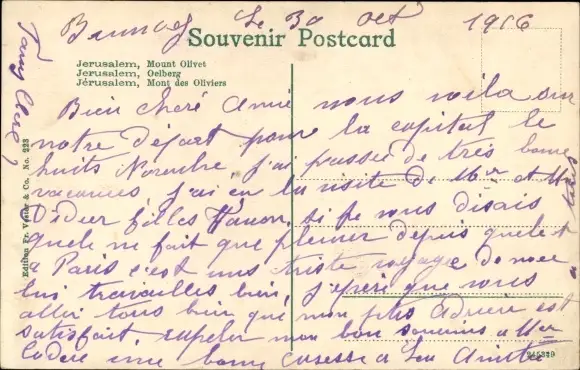 Brunoy Le 30 Oct 1916
Souvenir Postcard
Jerusalem, Mount Olivet
Jerusalem, Oelberg
Jérusalem, Mont des Oliviers
Bien cheré Amie nous voila sur
notre départ pour la capital le
huits Novembre, j'ai passée de tres bonne
vacances, j'ai eu la visite de Mr et
Didier filles, si je vous disais
quele ne fait que pleurer depuis quele est
à Paris c'est uns triste voyage de
travailles bien, j'espère que vous
aller tous bien que mon plus Adrien est
satisfait, rapeler mon bon souvenir a Mr
une bonne caresse a Amitié
Edition Fr. Vester & Co. No. 223